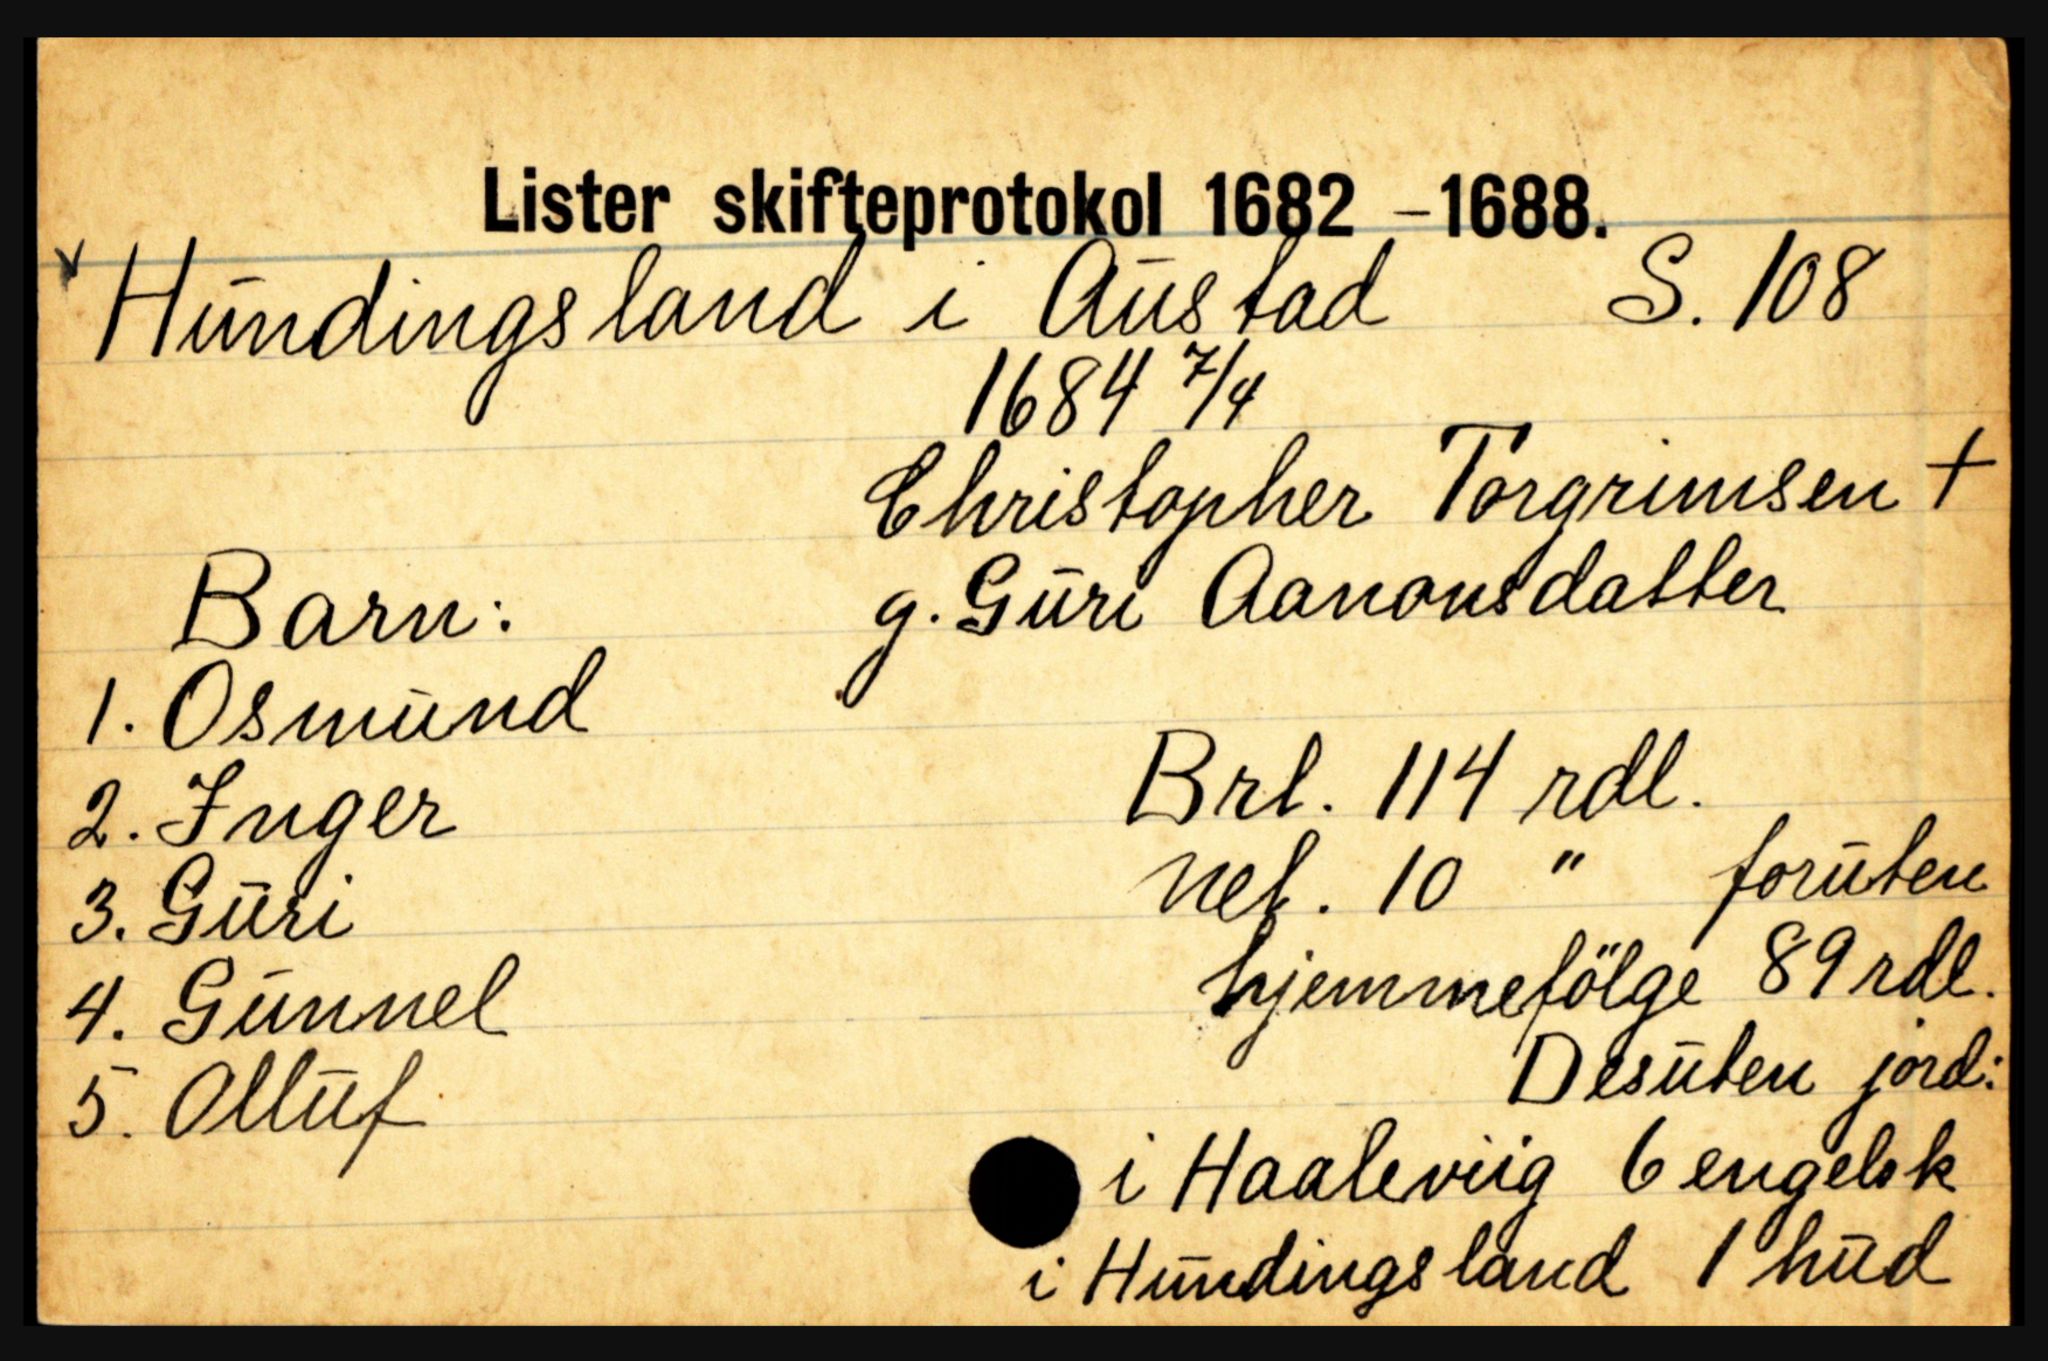 Lister skifteprotokol 1682 – 1688.
Hundingsland i Austad S. 108
1684 7/4
Christopher Torgrimsen +
g. Guri Aanonsdatter
Barn:
1. Osmund
2. Inger
3. Guri
4. Gunnel
5. Olluf
Brl. 114 rdl.
Net. 10 " foruten
hjemmefölge 89 rdl.
Desuten jord:
i Haaleviig 6 engelsk
i Hundingsland 1 hud